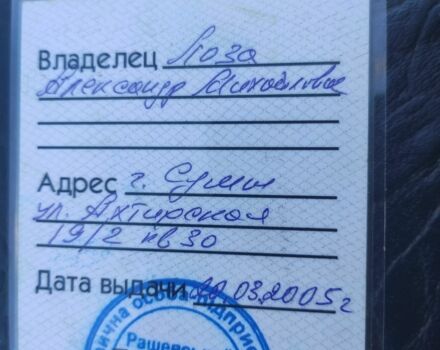 Владелец Лоза
Александр Михайлович
Адрес г. Сумы
ул. Ахтирская
19/2 кв 30
Дата выдачи 20.03.2005г
фізична особа підприє
Рашевс